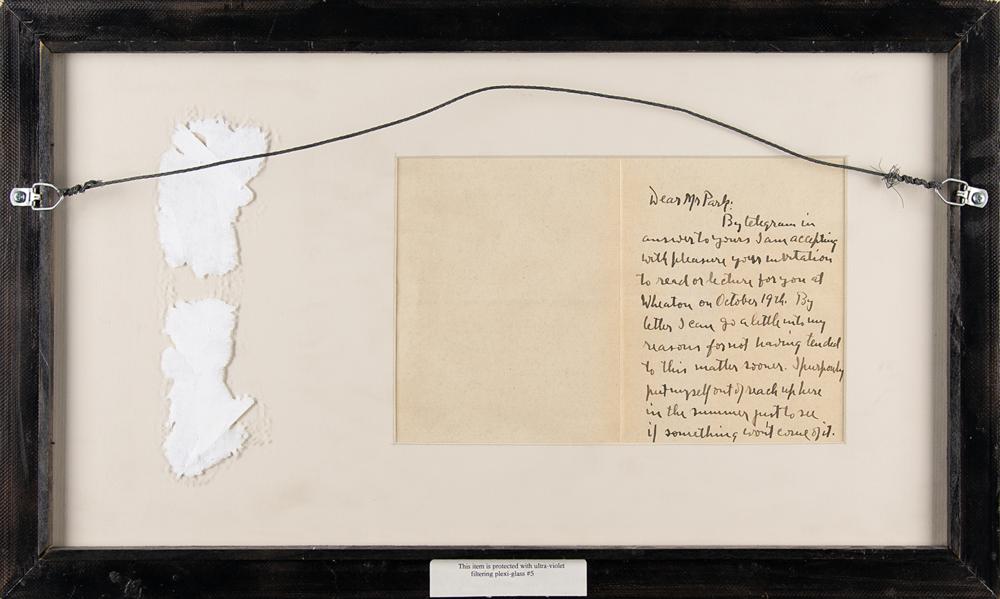 Dear Mr Park:
By telegram in
answer to yours I am accepting
with pleasure your invitation
to read or lecture for you at
Wheaton on October 19th. By
letter I can go a little into my
reasons for not having tended
to this matter sooner. I purposely
put myself out of reach up here
in the summer just to see
if something won't come of it.
This item is protected with ultra-violet
filtering plexi-glass #5